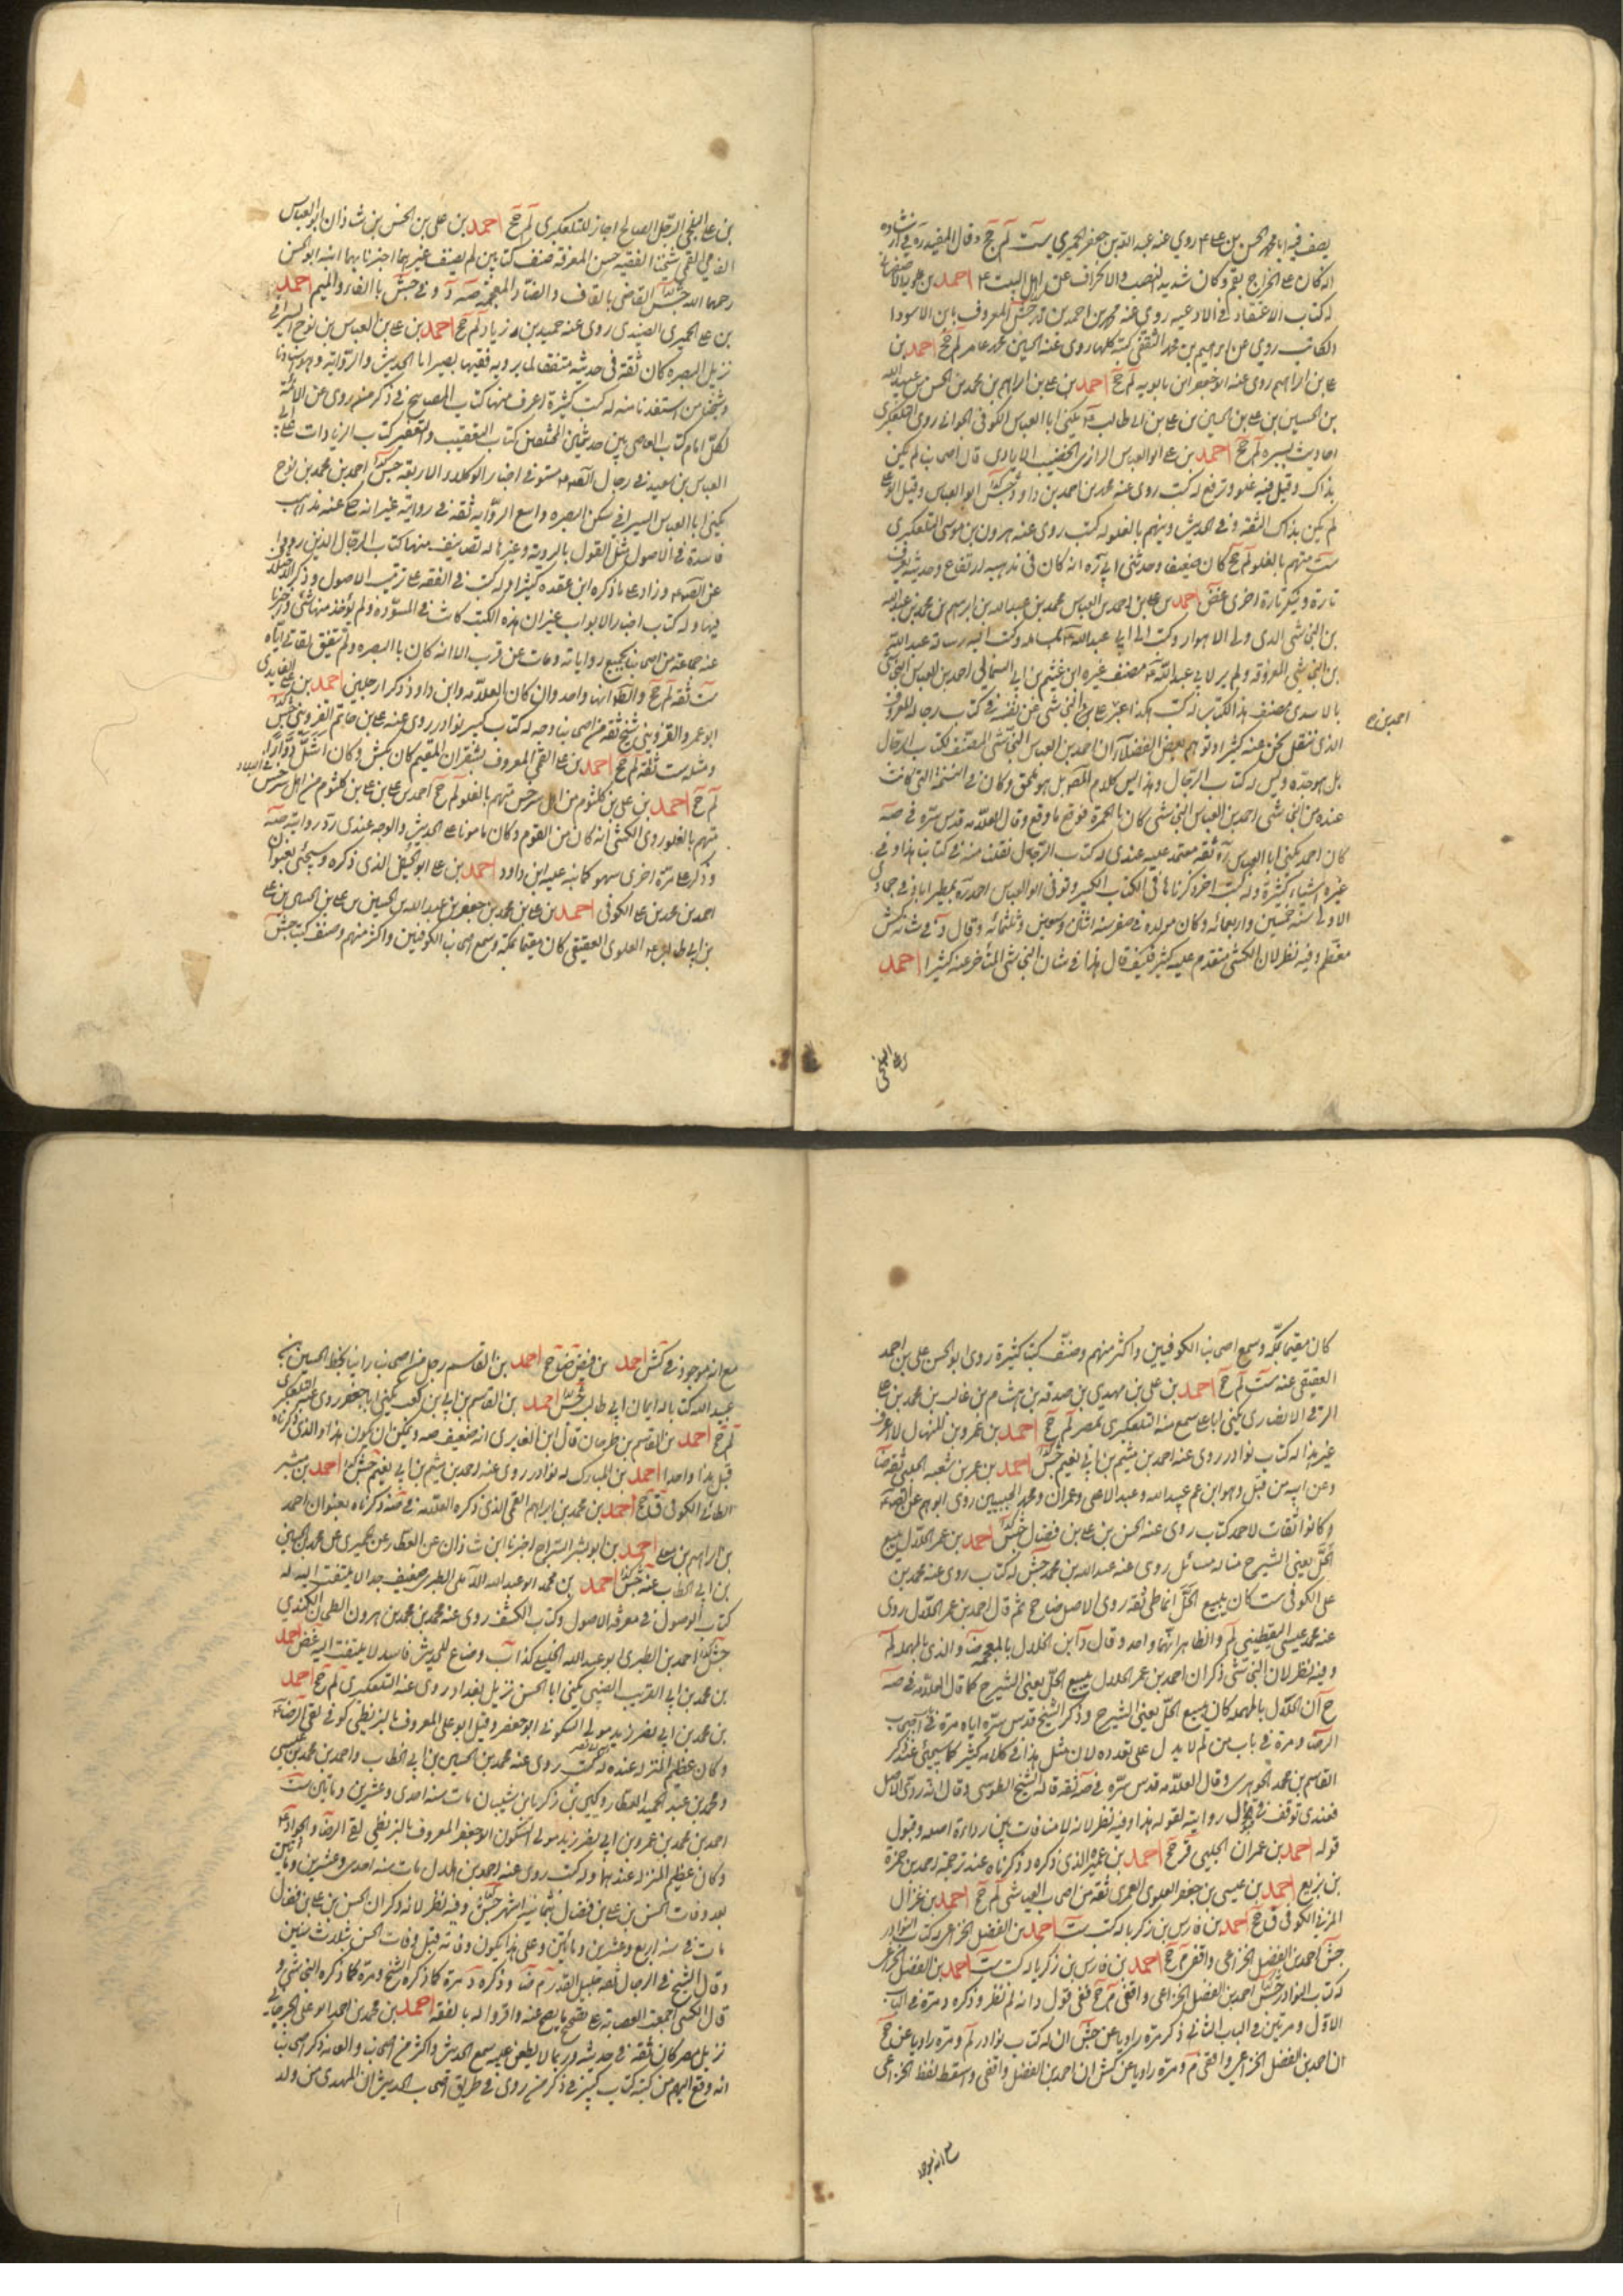 يصف فيه ابا محمد الحسن بن علي ع روى عنه عبد الله بن جعفر الحميري ست لم جخ وقال المفيد ره في ارشاده
انه كان على الخراج بقم وكان شديد النصب والانحراف عن اهل البيت ع احمد بن علويه الاصفهاني
له كتاب الاعتقاد في الادعيه روى عنه محمد بن احمد بن محمد جش المعروف بابن الاسود
الكاتب روى عن ابرهيم بن محمد الثقفي كتبه كلها روى عنه الحسين بن محمد بن عامر لم جخ احمد بن
علي بن ابراهيم روى عنه ابو جعفر ابن بابويه لم جخ احمد بن علي بن ابراهيم بن محمد بن الحسن بن عبيد الله
بن الحسين بن علي بن الحسين بن علي بن ابي طالب ع يكنى ابا العباس الكوفي الجواني روى التلعكبري
احاديث يسيره لم جخ احمد بن علي ابو العباس الرازي الخضيب الايادي قال اصحابنا لم يكن
بذاك وقيل فيه غلو وترفع له كتب روى عنه محمد بن احمد بن داود جش ابو العباس وقيل ابو علي
لم يكن بذاك الثقه في الحديث ويتهم بالغلو له كتب روى عنه هرون بن موسى التلعكبري
ست متهم بالغلو لم جخ كان ضعيفا وحدثني ابي ره انه كان في مذهبه ارتفاع وحديثه يعرف
تارة وينكر تارة اخرى غض احمد بن علي بن احمد بن العباس بن محمد بن عبد الله بن ابرهيم بن محمد بن عبد الله
بن النجاشي الذي ولي الاهواز وكتب الى ابي عبد الله ع يساله وكتب اليه رسالة عبد الله
بن النجاشي المعروفه ولم ير لابي عبد الله ع مصنف غيره ابن عثيم بن ابي السمال احمد بن العباس النجاشي
الاسدي مصنف هذا الكتاب له كتب هكذا عبر النجاشي عن نفسه في كتاب رجاله المعروف
الذي ننقل نحن عنه كثيرا وتوهم بعض الفضلاء ان احمد بن العباس النجاشي المصنف لكتاب الرجال
بل هو جده وليس له كتاب الرجال وهذا ليس كلام المص بل هو ملحق وكان في النسخة التي كانت
عنده من النجاشي احمد بن العباس النجاشي كان بالحمرة فوقع ما وقع وقال العلامه قدس سره في صه
كان احمد يكنى ابا العباس ره ثقه معتمد عليه عندي له كتاب الرجال نقلنا منه في كتابنا هذا وفي
غيره اشياء كثيرة وله كتب اخر ذكرناها في الكتاب الكبير وتوفي ابو العباس احمد ره بمطير اباد في جمادى
الاولى سنة خمسين واربعمائه وكان مولده في صفر سنه اثنتين وسبعين وثلثمائه وقال د في شانه كش
معظم وفيه نظر لان الكشي متقدم عليه بكثير فكيف قال هذا في شان النجاشي المتاخر عنه كثيرا احمد
احمد بن ح
بن علي البلخي
بن علي البلخي الرجل الصالح اجاز للتلعكبري لم جخ احمد بن علي بن الحسن بن شاذان ابو العباس
الفامي القمي شيخنا الفقيه حسن المعرفه صنف كتابين لم يصنف غيرهما اخبرنا بهما ابنه ابو الحسن
رحمهما الله جش القاضي بالقاف والضاد المعجمه صه د وفي جش بالفاء والميم احمد
بن علي الحميري الصيدي روى عنه حميد بن زياد لم جخ احمد بن علي بن العباس بن نوح السيرافي
نزيل البصره كان ثقة في حديثه متقنا لما يرويه فقيها بصيرا بالحديث والروايه وهو استادنا
وشيخنا ومن استفدنا منه له كتب كثيرة اعرف منها كتاب المصابيح في ذكر من روى عن الائمة
لكل امام كتاب القاضي بين حديثين المختلفين كتاب التعقيب والتعفير كتاب الزيادات على ابي
العباس بن سعيد في رجال الصه ع مستوفى اخبار الوكلاء الاربعه جش احمد بن محمد بن نوح
يكنى ابا العباس السيرافي سكن البصره واسع الروايه ثقه في روايته غير انه حكي عنه مذاهب
فاسدة في الاصول مثل القول بالروية وغيرها له تصانيف منها كتاب الرجال الذين رووا
عن الصه ع وزاد على ما ذكره ابن عقده كثيرا وله كتب في الفقه على ترتيب الاصول وذكر الاختلاف
فيها وله كتاب اخبار الابواب غير ان هذه الكتب كانت في المسوده ولم يوخذ منها شئ واخبرنا
عنه جماعة من اصحابنا بجميع رواياته ومات عن قرب الا انه كان بالبصره ولم يتفق لقائي اياه
ست ثقه لم جخ والظ انهما واحد وان كان العلامه وابن داود ذكرا رجلين احمد بن علي الفايدي
ابو عمرو القزويني شيخ ثقه من اصحابنا وجه له كتاب كبير نوادر روى عنه علي بن حاتم القزويني جش
ومثله ست ثقه لم جخ احمد بن علي القمي المعروف بشقران المقيم كان بكش وكان اشل دوارا
لم جخ احمد بن علي بن كلثوم من اهل سرخس متهم بالغلو لم جخ احمد بن علي بن كلثوم من اهل سرخس
متهم بالغلو روى الكشي انه كان من القوم وكان مامونا على الحديث والوجه عندي رد روايته صه
وذكره مرة اخرى سهو كما نبه عليه ابن داود احمد بن علي ابو الجيش الذي ذكره وسيجئ بعنوان
احمد بن محمد بن علي الكوفي احمد بن علي بن محمد بن جعفر بن عبد الله بن الحسين بن علي بن الحسين بن علي
بن ابي طالب ع العلوي العقيقي كان مقيما بمكة وسمع اصحابنا الكوفيين واكثر منهم وصنف كتبا جش
كان مقيما بمكه وسمع اصحابنا الكوفيين واكثر منهم وصنف كتبا كثيرة روى ابو الحسن علي بن احمد
العقيقي عنه ست لم جخ احمد بن علي بن مهدي بن صدقه بن هشام بن غالب بن محمد بن علي
الرقي الانصاري يكنى ابا علي سمع منه التلعكبري بمصر لم جخ احمد بن عمرو بن المنهال لا اعرف
غير هذا له كتاب نوادر روى عنه احمد بن ميثم بن ابي نعيم جش احمد بن عمر بن شعبه الحلبي ثقه ضا
وعن ابيه من قبل وهو ابن عم عبيد الله وعبد الاعلى وعمران ومحمد الحلبيين روى ابوهم عن الصه ع
وكانوا ثقات لاحمد كتاب روى عنه الحسن بن علي بن فضال جش احمد بن عمر الحلال يبيع
الحل يعني الشيرج ضا له مسائل روى عنه عبد الله بن محمد جش له كتاب روى عنه محمد بن
علي الكوفي ست كان يبيع الحل انماطي ثقه روى الاصل ضا جخ ثم قال احمد بن عمر الحلال روى
عنه محمد بن عيسى اليقطيني لم والظاهر انهما واحد وقال د ابن الخلال بالمعجمه ضا والذي بالمهمله لم
وفيه نظر لان النجاشي ذكر ان احمد بن عمر الحلال يبيع الحل يعني الشيرج كما قال العلامه في صه
ح ان الحلال بالمهمله كان يبيع الحل يعني الشيرج وذكر الشيخ قدس سره اياه مرة في اصحاب
الرضا ع ومرة في باب من لم لا يدل على تعدده لان مثل هذا في كلامه كثير كما سيجئ عند ذكر
القاسم بن محمد الجوهري وقال العلامه قدس سره في صه ثقه قاله الشيخ الطوسي وقال انه ردي الاصل
فعندي توقف في قبول روايته لقوله هذا وفيه نظر لانه لا منافات بين رداءة اصله وقبول
قوله احمد بن عمران الحلبي قر جخ احمد بن عميرة الذي ذكره د ذكرناه عند ترجمة احمد بن حمزة
بن بزيع احمد بن عيسى بن جعفر العلوي العمري ثقه من اصحاب العياشي لم جخ احمد بن غزال
المزني الكوفي ق جخ احمد بن فارس بن زكريا له كتب ست احمد بن الفضل الخزاعي له كتاب النوادر
جش احمد بن الفضل الخزاعي واقفي م جخ احمد بن فارس بن زكريا له كتب ست احمد بن الفضل الخزاعي
له كتاب النوادر جش احمد بن الفضل الخزاعي واقفي م جخ ففي قول د انه لم نظر وذكره د مرة في الباب
الاول ومرتين في الباب الثاني ذكر مرة راويا عن جش ان له كتاب نوادر لم ومرة راويا عن جخ
ان احمد بن الفضل الخزاعي واقفي م ومرة راويا عن كش ان احمد بن الفضل واقفي واسقط لفظ الخزاعي
مع انه موجود
مع انه موجود في كش احمد بن فيض ضا جخ احمد بن القاسم رجل من اصحابنا راينا بخط الحسين بن
عبيد الله كتابا له ايمان ابي طالب جش احمد بن القاسم بن ابي بن كعب يكنى ابا جعفر روى عنه التلعكبري
لم جخ احمد بن القاسم بن طرخان قال ابن الغضايري انه ضعيف صه ويمكن ان يكون هذا والذي ذكرناه
قبل هذا واحدا احمد بن المبارك له نوادر روى عنه احمد بن ميثم بن ابي نعيم جش احمد بن مبشر
الطائي الكوفي ق جخ احمد بن محمد بن ابراهيم القمي الذي ذكره العلامه في صه ذكرناه بعنوان احمد
بن ابراهيم بن معلى احمد بن ابو بشر السراج اخبرنا ابن شاذان عن العطار عن الحميري عن محمد بن الحسين
بن ابي الخطاب عنه جش احمد بن محمد ابو عبد الله الاملي الطبري ضعيف جدا لا يلتفت اليه له
كتاب الوصول في معرفة الاصول وكتاب الكشف روى عنه محمد بن محمد بن هرون الطحان الكندي
جش احمد بن الطبري ابو عبد الله الخليلي كذاب وضاع للحديث فاسد لا يلتفت اليه غض احمد
بن محمد بن ابي الغريب الضبي يكنى ابا الحسن نزيل بغداد روى عنه التلعكبري لم جخ احمد
بن محمد بن ابي نصر زيد مولى السكوني ابو جعفر وقيل ابو علي المعروف بالبزنطي كوفي لقي الرضا ع
وكان عظيم المنزله عنده له كتب روى عنه محمد بن الحسين بن ابي الخطاب واحمد بن محمد بن عيسى
ومحمد بن عبد الحميد العطار ويحيى بن زكريا بن شيبان مات سنه احدى وعشرين ومايتين ست
احمد بن محمد بن عمرو بن ابي نصر زيد مولى السكون ابو جعفر المعروف بالبزنطي لقي الرضا والجواد ع
وكان عظيم المنزله عندهما وله كتب روى عنه احمد بن هلال مات سنه احدى وعشرين ومايتين
بعد وفات الحسن بن علي بن فضال بثمانيه اشهر جش وفيه نظر لانه ذكر ان الحسن بن علي بن فضال
مات في سنه اربع وعشرين ومايتين وعلى هذا يكون وفاته قبل وفات الحسن بثلاث سنين
وقال الشيخ في الرجال ثقه جليل القدر م ضا وذكره د مرة كما ذكره الشيخ ومرة كما ذكره النجاشي و
قال الكشي اجمعت العصابة على تصحيح ما يصح عنه واقروا له بالفقه احمد بن محمد بن احمد ابو علي الجرجاني
نزيل مصر كان ثقة في حديثه ورعا لا يطعن عليه سمع الحديث واكثر من اصحابنا والعامه ذكر اصحابنا
انه وقع اليهم من كتبه كتاب كبير في ذكر من روى في طريق اصحاب الحديث ان المهدي من ولد